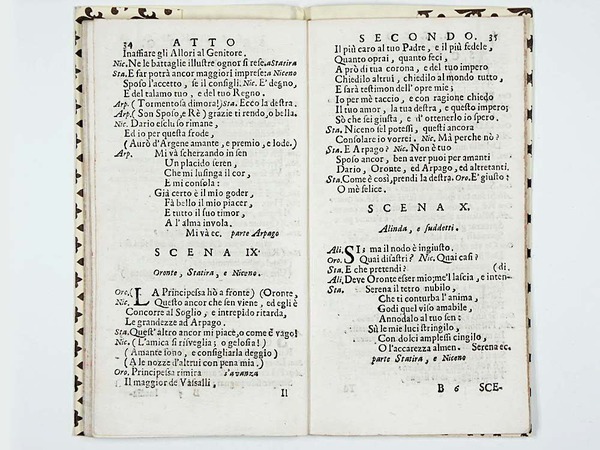 34 ATTO
Inaffiare gli Allori al Genitore.
Nic. Ne le battaglie illustre ognor si rese. a Statira
Sta. E far potrà ancor maggiori imprese: a Niceno
Sposo l'accetto, se il consigli. Nic. E' degno,
E del talamo tuo, e del tuo Regno.
Arp. (Tormentosa dimora!) Sta. Ecco la destra.
Arp. (Son Sposo, e Rè) grazie ti rendo, o bella.
Nic. Dario escluso rimane,
Ed io per questa frode,
(Aurò d'Argene amante, e premio, e lode.)
Arp. Mi và scherzando in sen
Un placido seren,
Che mi lusinga il cor,
E mi consola:
Già certo è il mio goder,
Fà bello il mio piacer,
E tutto il suo timor,
A l'alma invola.
Mi và ec. parte Arpago
SCENA IX.
Oronte, Statira, e Niceno.
Oro. (LA Principessa hò a fronte) (Oronte,
Nic. Questo ancor che sen viene, ed egli è
Concorre al Soglio, e intrepido ritarda,
Le grandezze ad Arpago.
Sta. Quest' altro ancor mi piace, o come è vago!
Nic. (L'amica si risveglia; o gelosia!)
(Amante sono, e consigliarla deggio)
(A le nozze d'altrui con pena mia.)
Oro. Principessa rimira s'avanza
Il maggior de Vassalli,
Il
SECONDO. 35
Il più caro al tuo Padre, e il più fedele,
Quanto oprai, quanto feci,
A prò di tua corona, e del tuo impero
Chiedilo altrui, chiedilo al mondo tutto,
E sarà testimon dell' opre mie;
Io per mè taccio, e con ragione chiedo
Il tuo amor, la tua destra, e questo impero;
Sò che sei giusta, e d'ottenerlo io spero.
Sta. Niceno sel potessi, questi ancora
Consolare io vorrei. Nic. Mà perche nò?
Sta. E Arpago? Nic. Non è tuo
Sposo ancor, ben aver puoi per amanti
Dario, Oronte, ed Arpago, ed altretanti.
Sta. Come è così, prendi la destra. Oro. E' giusto?
O mè felice.
SCENA X.
Alinda, e suddetti.
Ali. SI; ma il nodo è ingiusto.
Oro. Quai disastri? Nic. Quai casi?
Sta. E che pretendi? (di.
Ali. Deve Oronte esser mio; me'l lascia, e inten-
Sta. Serena il tetro nubilo,
Che ti conturba l'anima,
Godi quel viso amabile,
Annodalo al tuo sen:
Sù le mie luci stringilo,
Con dolci amplessi cingilo,
O l'accarezza almen. Serena ec.
parte Statira, e Niceno
B 6 SCE-